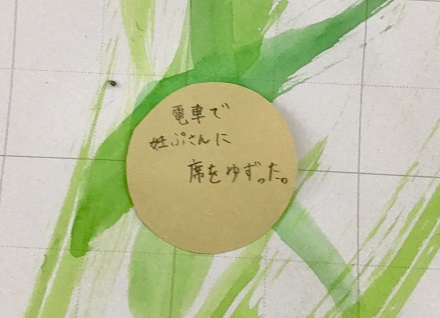 電車で
妊ぷさんに
席をゆずった。